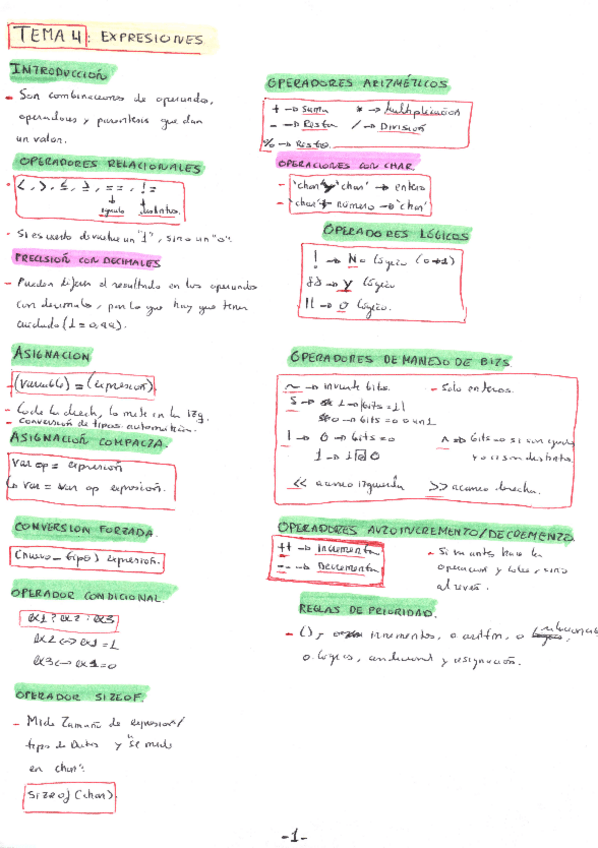 TEMA 4: EXPRESIONES
INTRODUCCIÓN
- Son combinaciones de operandos,
operadores y parentesis que dan
un valor.
OPERADORES RELACIONALES
<, >, ≤, ≥, ==, !=
igualo distintos
- Si es cierto devuelve un "1", sino un "0".
PRECISIÓN CON DECIMALES
- Pueden el resultado en los operandos
con decimales, por lo que hay que tener
cuidado (1 = 0,99).
ASIGNACION
- (variable) = (expresión)
- Coge la derech, lo mete en la izq.
- conversión de tipos automática.
ASIGNACIÓN COMPACTA.
var op = expresión
var = var op expresión.
CONVERSION FORZADA.
(nuevo_tipo) expresión.
OPERADOR CONDICIONAL.
ex1 ? ex2 : ex3
ex2 <-> ex1 = 1
ex3 <-> ex1 = 0
OPERADOR SIZEOF.
- Mide Tamaño de expresion/
tipo de Datos y "se mide
en char".
sizeof (char)
OPERADORES ARITMÉTICOS
+ → Suma * → Multiplicación
- → Resta / → División
% → Resto.
OPERACIONES CON CHAR.
- 'char' y 'char' → entero
- 'char' + número → 'char'
OPERADORES LÓGICOS
! → No lógico (0→1)
&& → Y lógico
|| → O lógico.
OPERADORES DE MANEJO DE BITS.
~ → invierte bits. - Solo enteros.
| → 0 → bits = 0
<< avance izquierda >> avance derecha.
OPERADORES AUTOINCREMENTO/DECREMENTO
++ → Incrementa
-- → Decrementa
- Si va antes hace la
operacion y coge, sino
al revés.
REGLAS DE PRIORIDAD.
- (), incrementos, o aritm, o relacionales
o. lógicos, condicional y asignación.
-1-